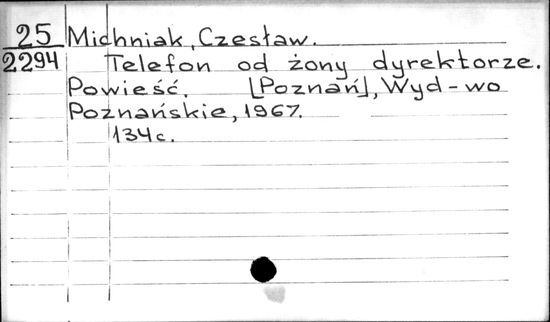 25 Michniak, Czesław.
2294 Telefon od żony dyrektorze.
Powieść. [Poznań], Wyd-wo
Poznańskie, 1967.
134 c.